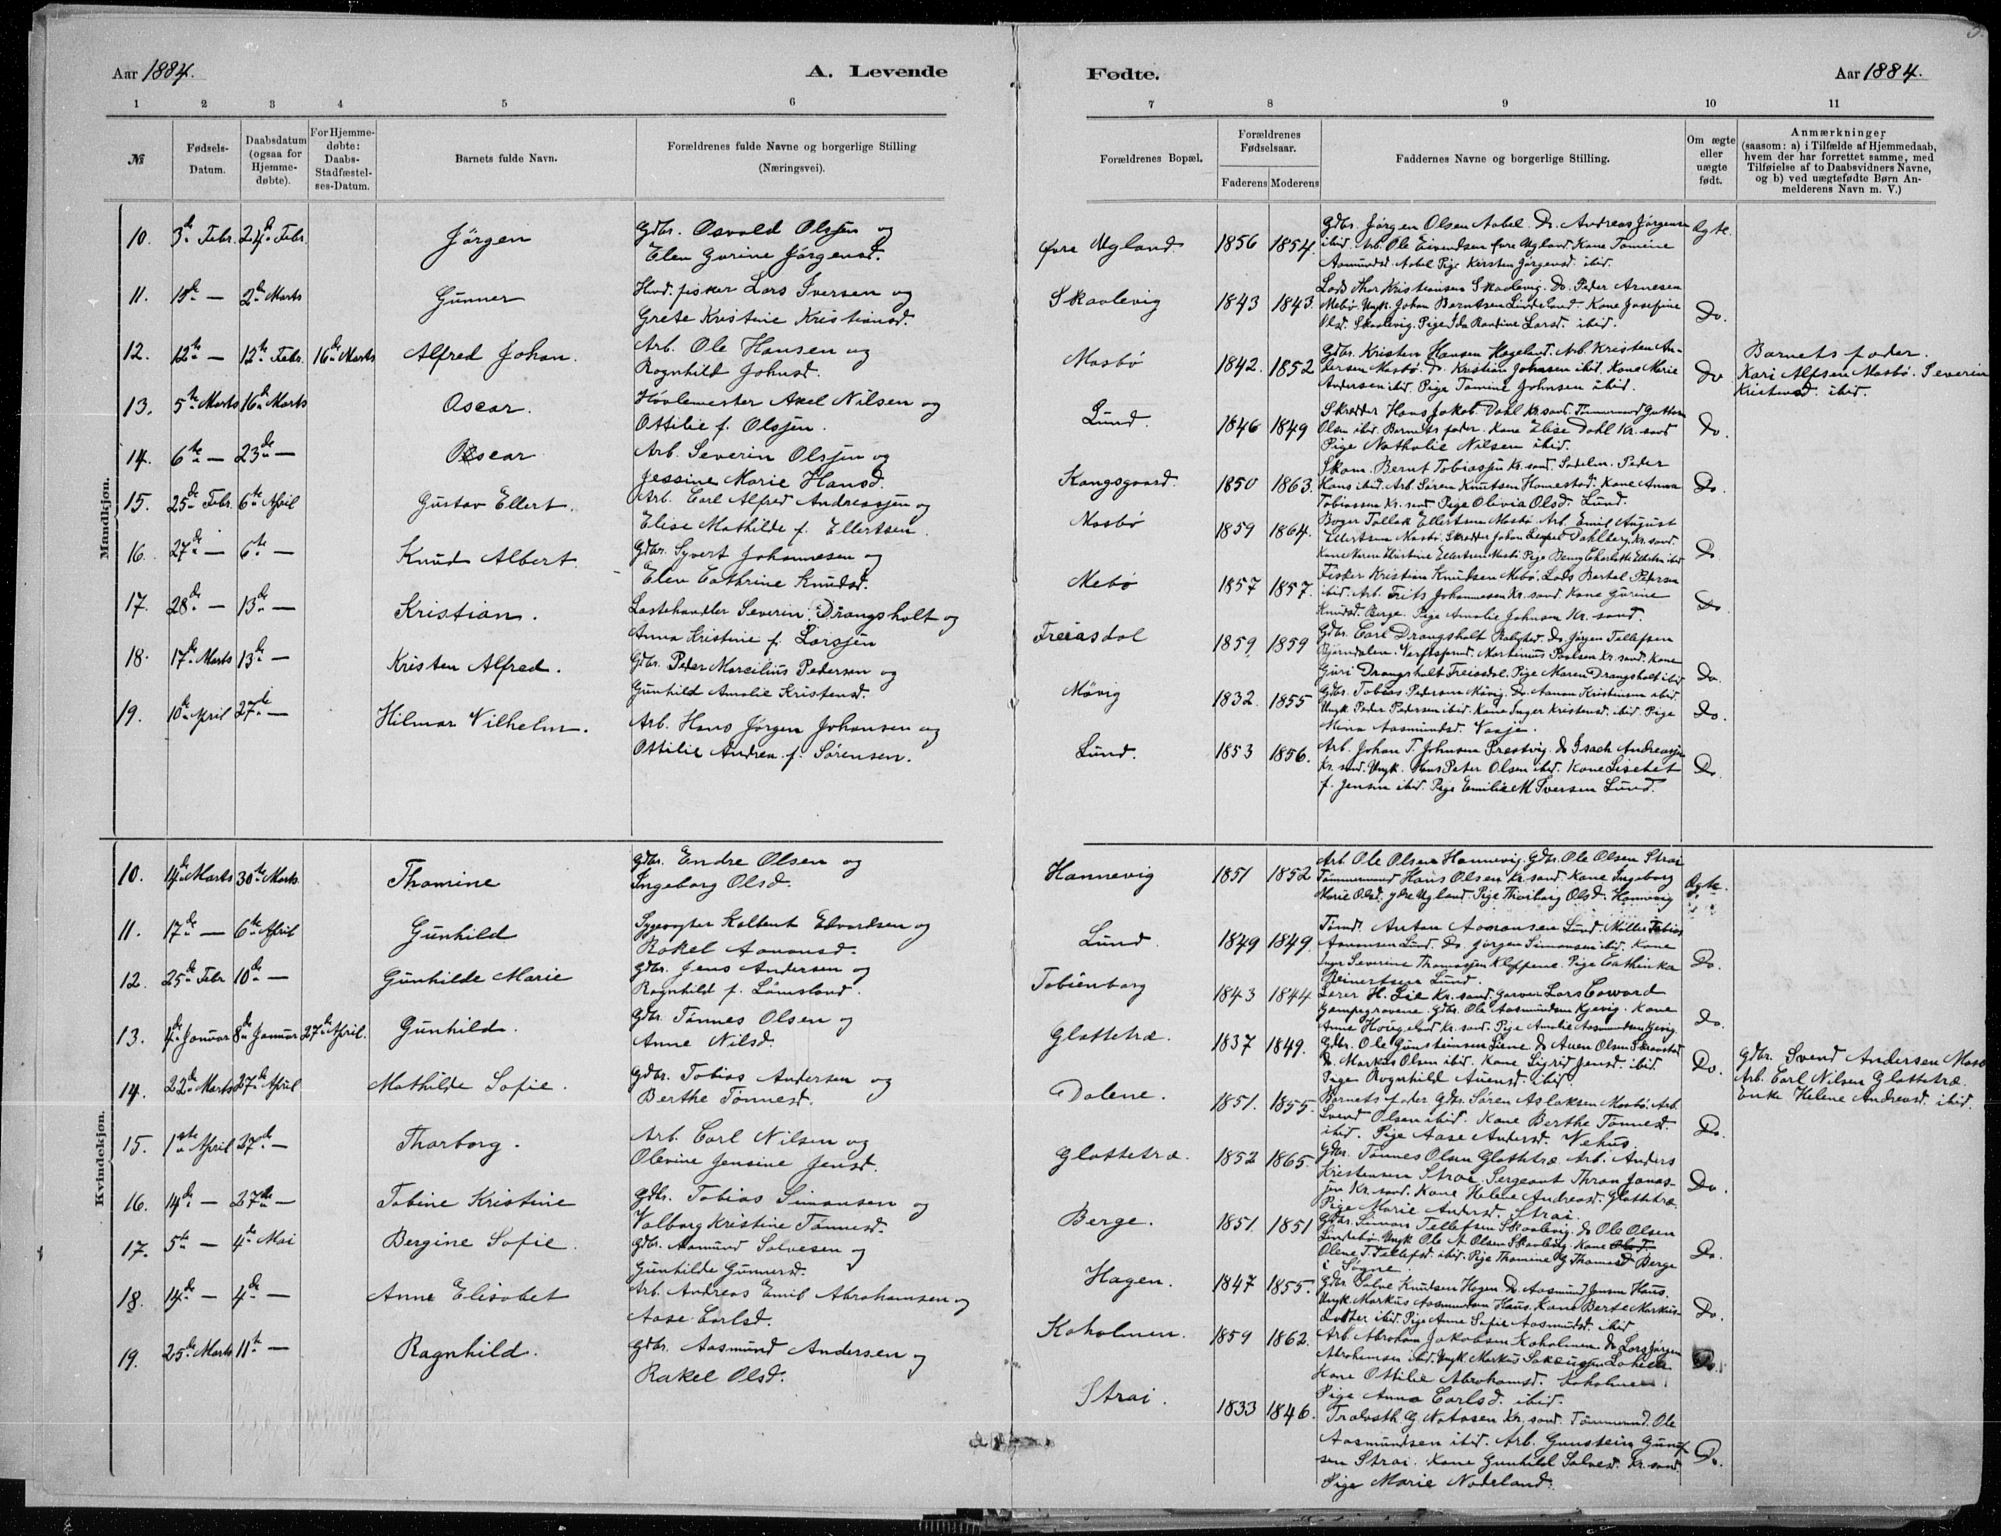 Aar 1884.
A. Levende
Fødte.
Aar 1884.
1 2 3 4 5 6 7 8 9 10 11
№
Fødsels-
Datum.
Daabsdatum
(ogsaa for
Hjemme-
døbte).
For Hjemme-
døbte:
Daabs-
Stadfæstel-
ses-Datum.
Barnets fulde Navn.
Forældrenes fulde Navne og borgerlige Stilling
(Næringsvei).
Forældrenes Bopæl.
Forældrenes
Fødselsaar.
Faderens Moderens
Faddernes Navne og borgerlige Stilling.
Om ægte
eller
uægte
født.
Anmærkninger
(saasom: a) i Tilfælde af Hjemmedaab,
hvem der har forrettet samme, med
Tilføielse af to Daabsvidners Navne,
og b) ved uægtefødte Børn An-
melderens Navn m. V.)
Mandkjøn.
10. 3de Febr. 24de Febr. Jørgen
Gdbr. Osvald Olsen og
Elen Gurine Jørgensd.
øvre Ugland 1856 1854.
Gdbr. Jørgen Olsen Aabel. Do. Andreas Jørgensen
ibid. Arb. Ole Eivendsen øvre Ugland. Kone Tomine
Aasmundsd. Aabel. Pige Kirsten Jørgensd. ibid.
Ægte.
11. — 2den Marts Gunner
Hvd. fisker Lars Iversen og
Grete Kristine Kristiansd.
Skaalevig 1843 1843.
Lods Thor Kristiansen Skaalevig. Do. Peder Arnesen
Mebø. Ungk. Johan Berntsen Lindelund. Kone Josefine
Olsd. Skaalevig. Pige Ida Randine Larsd. ibid.
Do.
12. 12te — 12te Febr. 16de Marts Alfred Johan.
Arb. Ole Hansen og
Ragnhild Johnsd.
Mosbø 1842. 1852
Gdbr. Kristen Hansen Hageland. Arb. Kristen An-
dersen Mosbø. Do. Kristian Johnsen ibid. Kone Marie
Andersen ibid. Pige Tomine Johnsen ibid.
Do
Barnets fader.
Kari Alfsen Mosbø. Severin
Kristensd. ibid.
13. 5te Marts 16de Marts Oscar.
Høvlemester Axel Nilsen og
Ottilie f. Olsen.
Lund. 1846 1849
Skrædder Hans Jakob Dahl Kr.sand. Tømmermand
Olsen ibid. Barnets fader. Kone Elise Dahl Kr. sand
Pige Nathalie Nilsen ibid.
Do.
14. 6te — 23de — Oscar
Arb. Severin Olsen og
Jessine Marie Hansd.
Kongsgaard. 1850 1863.
Skom. Bernt Tobiassen Kr.sand. Sadelm. Peder
Hans ibid. Arb. Søren Knutsen Homestad. Kone Anna
Tobiassen Kr. sand. Pige Olivia Olsd. Lund.
Do.
15. 25de Febr. 6te April Gustav Ellert.
Arb. Carl Alfred Andreassen og
Elise Mathilde f. Ellertsen.
Mosbø 1859 1864.
Bager Tollak Ellertsen Mosbø. Arb. Emil August
Ellertsen Mosbø. Skrædder Johan Dahlberg Kr. sand.
Do
16. 27de — 6te — Knud Albert
Gdbr. Syvert Johannesen og
Elen Cathrine Knudsd.
Mebø 1857 1857.
Fisker Kristian Knudsen Mebø. Lods Bertel Petersen
ibid. Arb. Frits Johannesen Kr. sand. Kone Gurine
Knudsd. Berge. Pige Amalie Johnsen Kr. sand.
Do
17. 28de — 13de — Kristian.
Lastehandler Severin Drangsholt og
Anna Kristine f. Larsen
Freiasdal 1859 1859
Gdbr. Carl Drangsholt Do. Jørgen Tellefsen
Bjørndalen. Martinius Paulsen Kr. sand. Kone
Guri Drangsholt Freiasdal. Pige Maren Drangsholt ibid.
Do.
18. 17de Marts 13de — Kristen Alfred.
Gdbr. Peder Marcelius Pedersen og
Gunhild Amalie Kristensd.
Møvig 1832. 1855
Gdbr. Tobias Pedersen Møvig. Do. Aanon Kristensen ibid.
Ungk. Peder Pedersen ibid. Kone Inger Kristensd. ibid. Pige
Mina Aasmundsd. Vaaje.
Do.
19. 10de April 27de — Hilmar Vilhelm.
Arb. Hans Jørgen Johansen og
Ottilie Andrea f. Sørensen.
Lund. 1853 1856.
Arb. Johan T. Johnsen Prestvig. Do Isach Andreassen
Kr. sand. Ungk. Hans Peter Olsen ibid. Kone Lisebet
f. Jensen ibid. Pige Emilie M. Iversen Lund.
Do.
Kvindekjøn.
10. 4de Marts 30te Marts Thomine
Gdbr. Endre Olsen og
Ingeborg Olsd.
Hannevig 1851 1852
Arb. Ole Olsen Hannevig. Gdbr. Ole Olsen Strai
Tømmermand Hans Olsen Kr. sand. Kone Ingeborg
Marie Olsd. ydre Ugland. Pige Thorborg Olsd. Hannevig
Ægte.
11. 17de — 6te April Gunhild
Sygevogter Kolbent Edvardsen og
Rakel Aanonsd.
Lund. 1849 1849.
Tømd. Anton Aanonsen Lund. Møller Tobias
Aanonsen Lund. Do. Jørgen Simonsen ibid. Kone
Inger Severine Thomassen Kleppene. Pige Cathinka
Reinertsen Lund.
Do.
12. 25de Febr. 10de — Gunhilde Marie
Gdbr. Jens Andersen og
Ragnhild f. Lømsland.
Tobienborg 1843 1844
Lærer H. Lie Kr. sand. Garver Lars Coward
Gdbr. Ole Aasmundsen Kjevig. Kone
Anne Kr. sand. Pige Amalie Aasmundsen Kjevig.
Do.
13. 4de Januar 8de Januar 27de April. Gunhild.
Gdbr. Tønnes Olsen og
Anne Nilsd.
Glattetræ 1837 1849.
Gdbr. Ole Gunsteinsen Liene. Do Auen Olsen
Do Markus Olsen ibid. Kone Sigrid Jensd. ibid.
Pige Ragnhild Auensd. ibid.
Do.
Gdbr. Svend Andersen
Arb. Carl Nilsen Glattetræ.
Enke Helene Andreasd. ibid.
14. 22de Marts 27de April Mathilde Sofie.
Gdbr. Tobias Andersen og
Berthe Tønnesd.
Dalene. 1851. 1855.
Barnets fader Gdbr. Søren Aslaksen Mosbø. Arb.
Svend Olsen ibid. Kone Berthe Tønnesd.
ibid. Pige Aase Andersd. Vehus.
Do.
15. 1ste April 27de — Thorborg.
Arb. Carl Nilsen og
Olevine Jensine Jensd.
Glattetræ. 1852 1865.
Gdbr. Tønnes Olsen Glattetræ. Arb. Anders
Kristensen Strai. Sergeant Thron Jonas-
sen Kr. sand. Kone Helene Andreasd. Glattetræ.
Pige Marie Andersd. Strai.
Do.
16. 14de — 27de — Tobine Kristine
Gdbr. Tobias Simonsen og
Valborg Kristine Tønnesd.
Berge. 1851. 1851
Gdbr. Simon Tellefsen Skaalevig. Do Ole Olsen
Lindebø. Ungk. Ole A. Olsen Skaalevig. Kone
Olene T. Tellefsd. ibid. Pige Thomine G. Thomasd. Berge
i Søgne.
Do.
17. 5te — 4de Mai Bergine Sofie.
Gdbr. Aamund Salvesen og
Gunhilde Gunnersd.
Hagen. 1847 1855.
Gdbr. Salve Knudsen Hagen. Do. Aasmund Jensen Haus.
Ungk. Markus Aasmundsen Haus. Kone Berte Markus-
datter ibid. Pige Anne Sofie Aasmundsd. ibid
Do.
18. 14de — 4de — Anne Elisabet
Arb. Andreas Emil Abrahamsen og
Aase Carlsd.
Koholmen. 1859 1862.
Arb. Abraham Jakobsen Koholmen. Do Lars Jørgen
Abrahamsen ibid. Ungk. Markus
Kone Ottilie Abrahamsd. Koholmen.
Pige Anna Carlsd. ibid.
Do.
19. 25de Marts 11te — Ragnhild.
Gdbr. Aasmund Andersen og
Rakel Olsd.
Strai. 1833 1846.
G. Natasen Kr. sand. Tømmermd. Ole
Aasmundsen ibid. Arb. Gunstein Gun-
sen Strai. Kone Gunhild Salvesd. Kr. sand.
Pige Marie Nodeland.
Do.